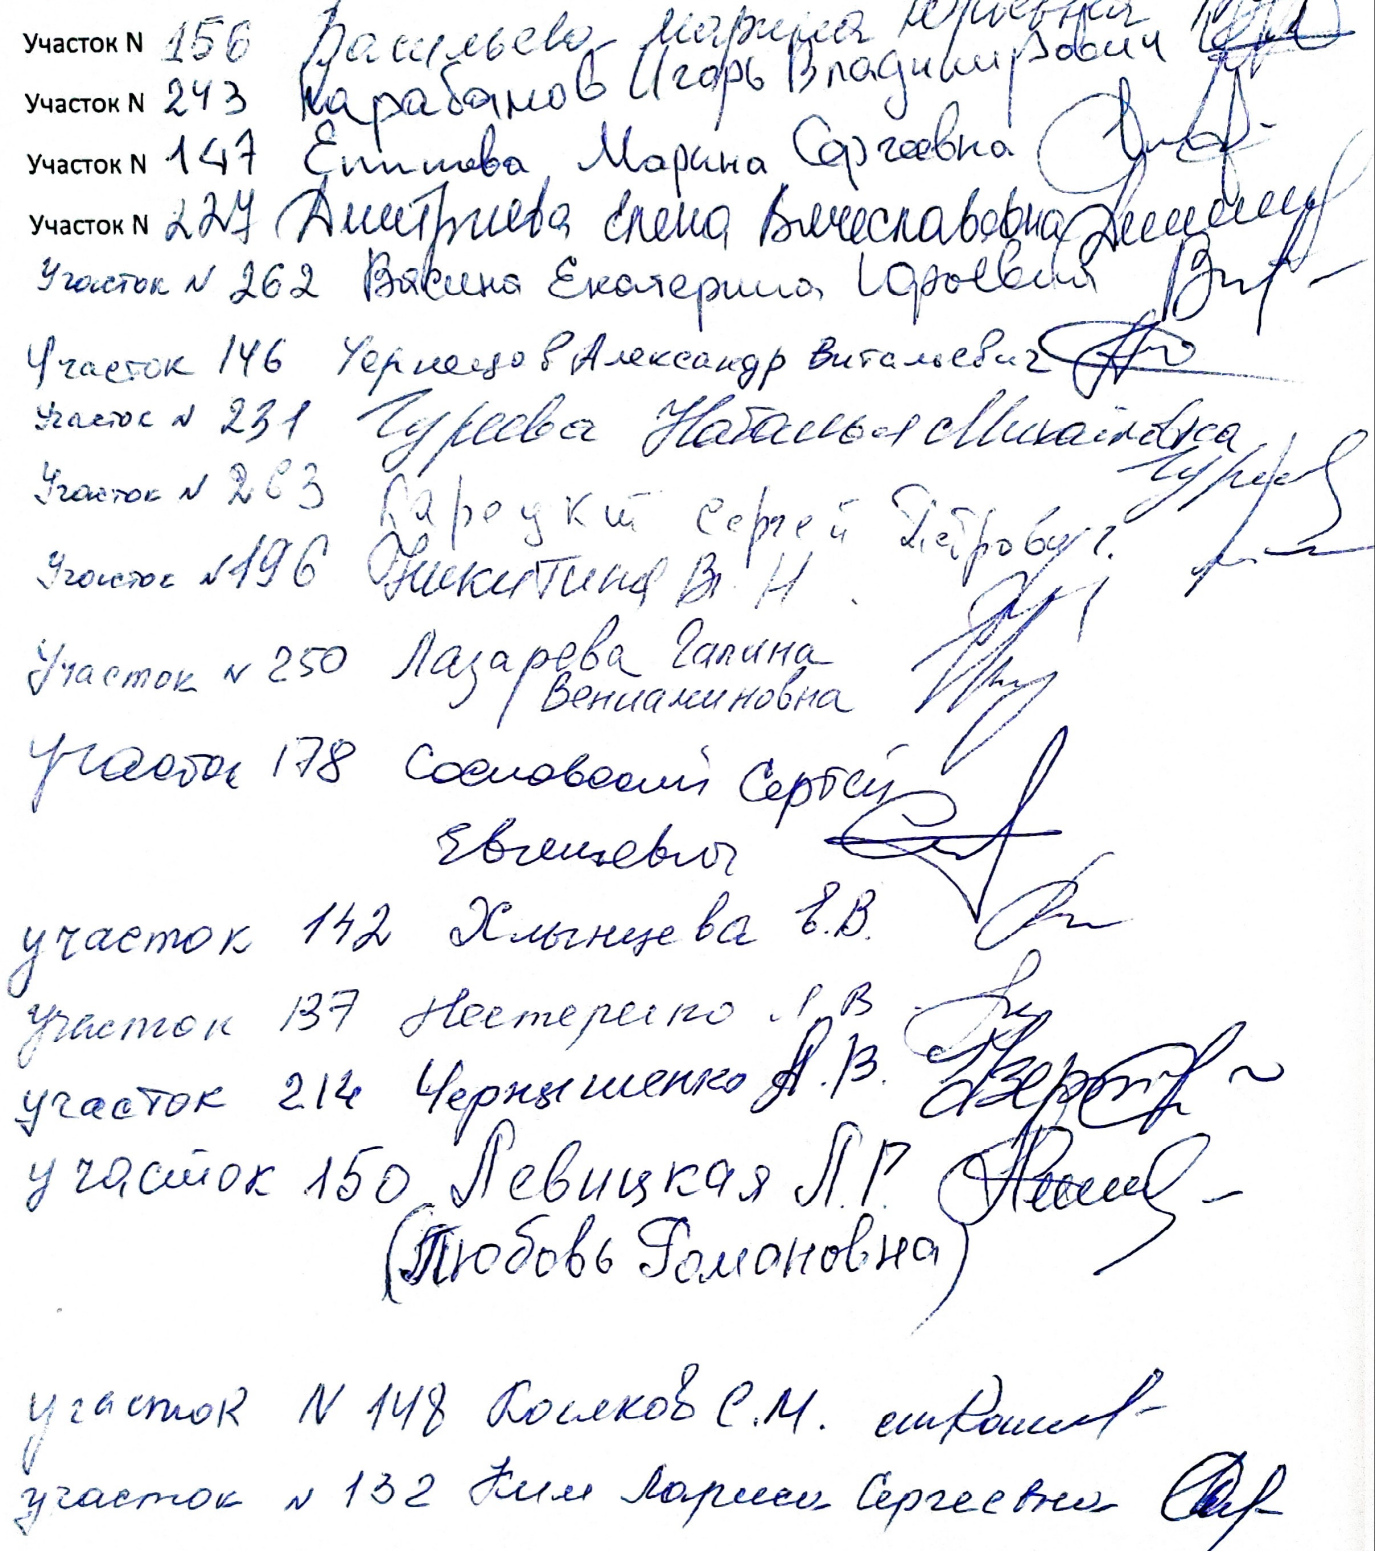 Участок N 156 Васильева Марина Юрьевна
Участок N 243 Карабанов Игорь Владимирович
Участок N 147 Марина Сергеевна
Участок N 227 Дмитриева Елена Вячеславовна
Участок N 262 Васина Екатерина Юрьевна
Участок 146 Чернецов Александр Витальевич
Участок N 231 Гуреева Наталья Михайловна
Участок N 263 Сергей Петрович
Участок N 196 Никитина В. Н.
Участок N 250 Лазарева Галина
Вениаминовна
Участок 178 Сосновский Сергей
Евгеньевич
участок 142 Хлынцева Е.В.
участок 137 Нестеренко В
участок 214 Чернышенко А.В.
участок 150 Левицкая Л.Г.
(Любовь Романовна)
участок N 148 С.М.
участок N 132 Ким Лариса Сергеевна